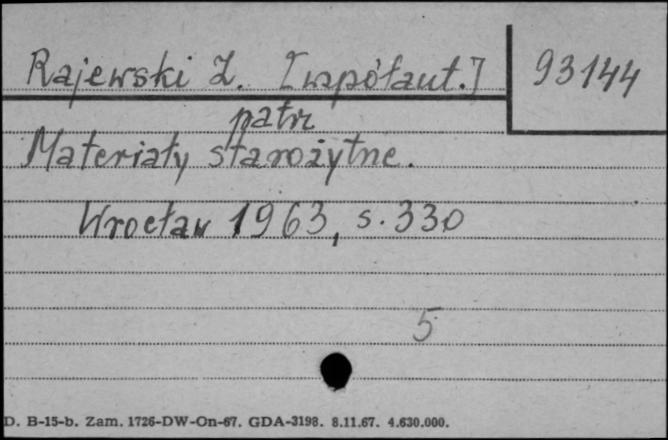 Rajewski Z. [współaut.]
93144
patrz
Materiały starożytne.
Wrocław 1963, s. 330
5
D. B-15-b. Zam. 1726-DW-On-67. GDA-3198. 8.11.67. 4.630.000.